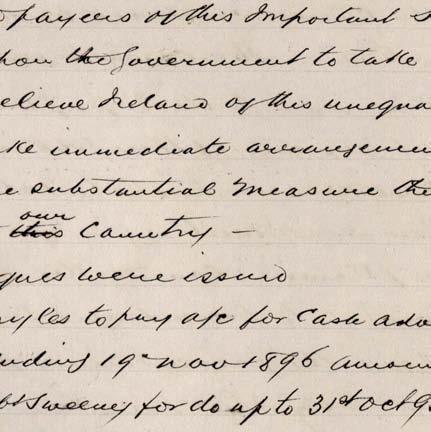 payers of this Important
upon the Government to take
relieve Ireland of this unequa
ke immediate arrangemen
e substantial Measure the
our
this Country —
ques were issued
to pay a/c for Cash adv
ending 19 Nov 1896 amoun
Sweeney for do up to 31st Oct 9